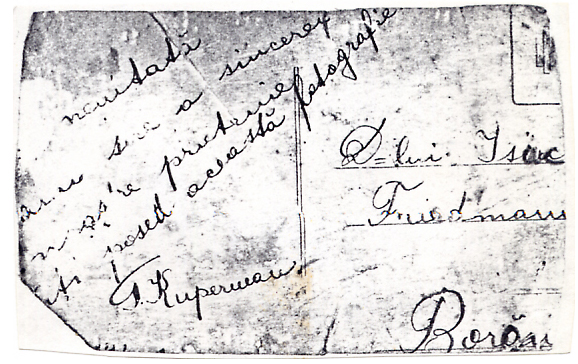 neuitată
a sincerei
n as're prietenie
Ai posed această fotografie
F. Kuperman
D-lui Isac
Friedmann